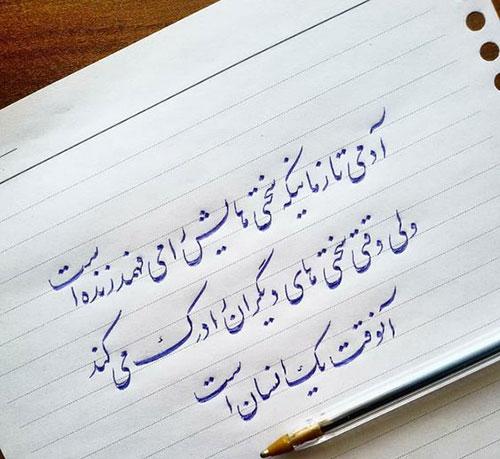 آدمی تا زمانیکه سختی هایش را می فهمد زنده است
ولی وقتی سختی های دیگران را درک می کند
آنوقت یک انسان است